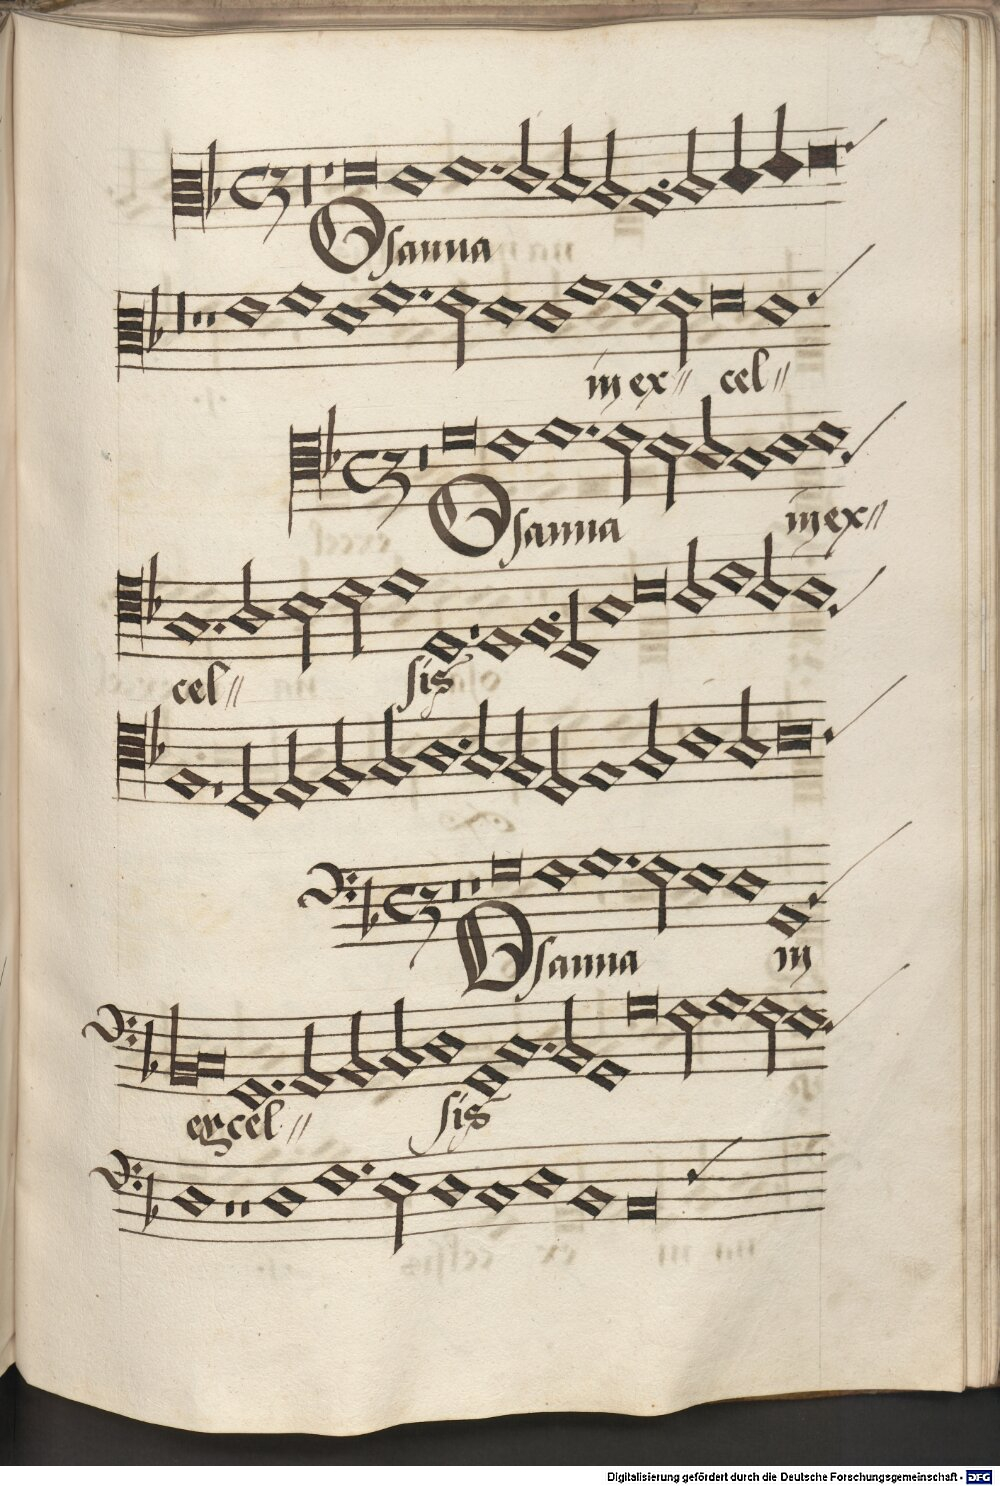 Osanna
in ex cel
Osanna in ex
cel sis
Osanna in
excel sis
Digitalisierung gefördert durch die Deutsche Forschungsgemeinschaft - DFG